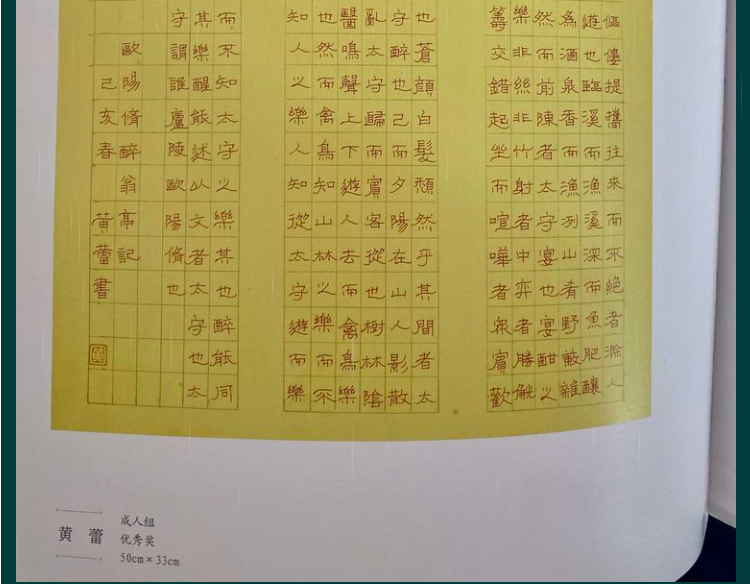 傴僂提攜往來而不絕者滁人
遊也臨溪而漁溪深而魚肥釀
為酒泉香而漁洌山肴野蔌雜
然而前陳者太守宴也宴酣之
樂非絲非竹射者中弈者勝觥
籌交錯起坐而喧嘩者眾賓歡
也蒼顏白髮頹然乎其間者太
守醉也已而夕陽在山人影散
亂太守歸而賓客從也樹林陰
醫鳴聲上下遊人去而禽鳥樂
也然而禽鳥知山林之樂而不
知人之樂人知從太守遊而樂
而不知太守之樂其也醉能同
其樂醒能述以文者太守也太
守謂誰廬陵歐陽脩也
歐陽脩醉翁亭記
己亥春黃蕾書
黄蕾
成人组
优秀奖
50cm×33cm